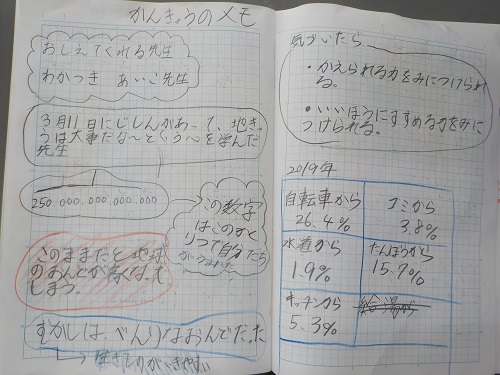 かんきょうのメモ
おしえてくれる先生
わかつき あいこ先生
3月11日にじしんがあって、地き
うは大事だな〜とくう〜を学んだ
先生
250.000.000.000.000
この数字
は
りつで自分たち
がうまれた
このままだと地球
のおんどが高くなって
しまう。
むかしは、べんりなおんどだった
生きものがいきやすい
気づいたら
・かえられる力をみにつけられ
る。
・いいほうにすすめる力をみに
つけられる。
2019年
自転車から
26.4%
ゴミから
3.8%
水道から
1.9%
だんぼうから
15.7%
キッチンから
5.3%
給湯から